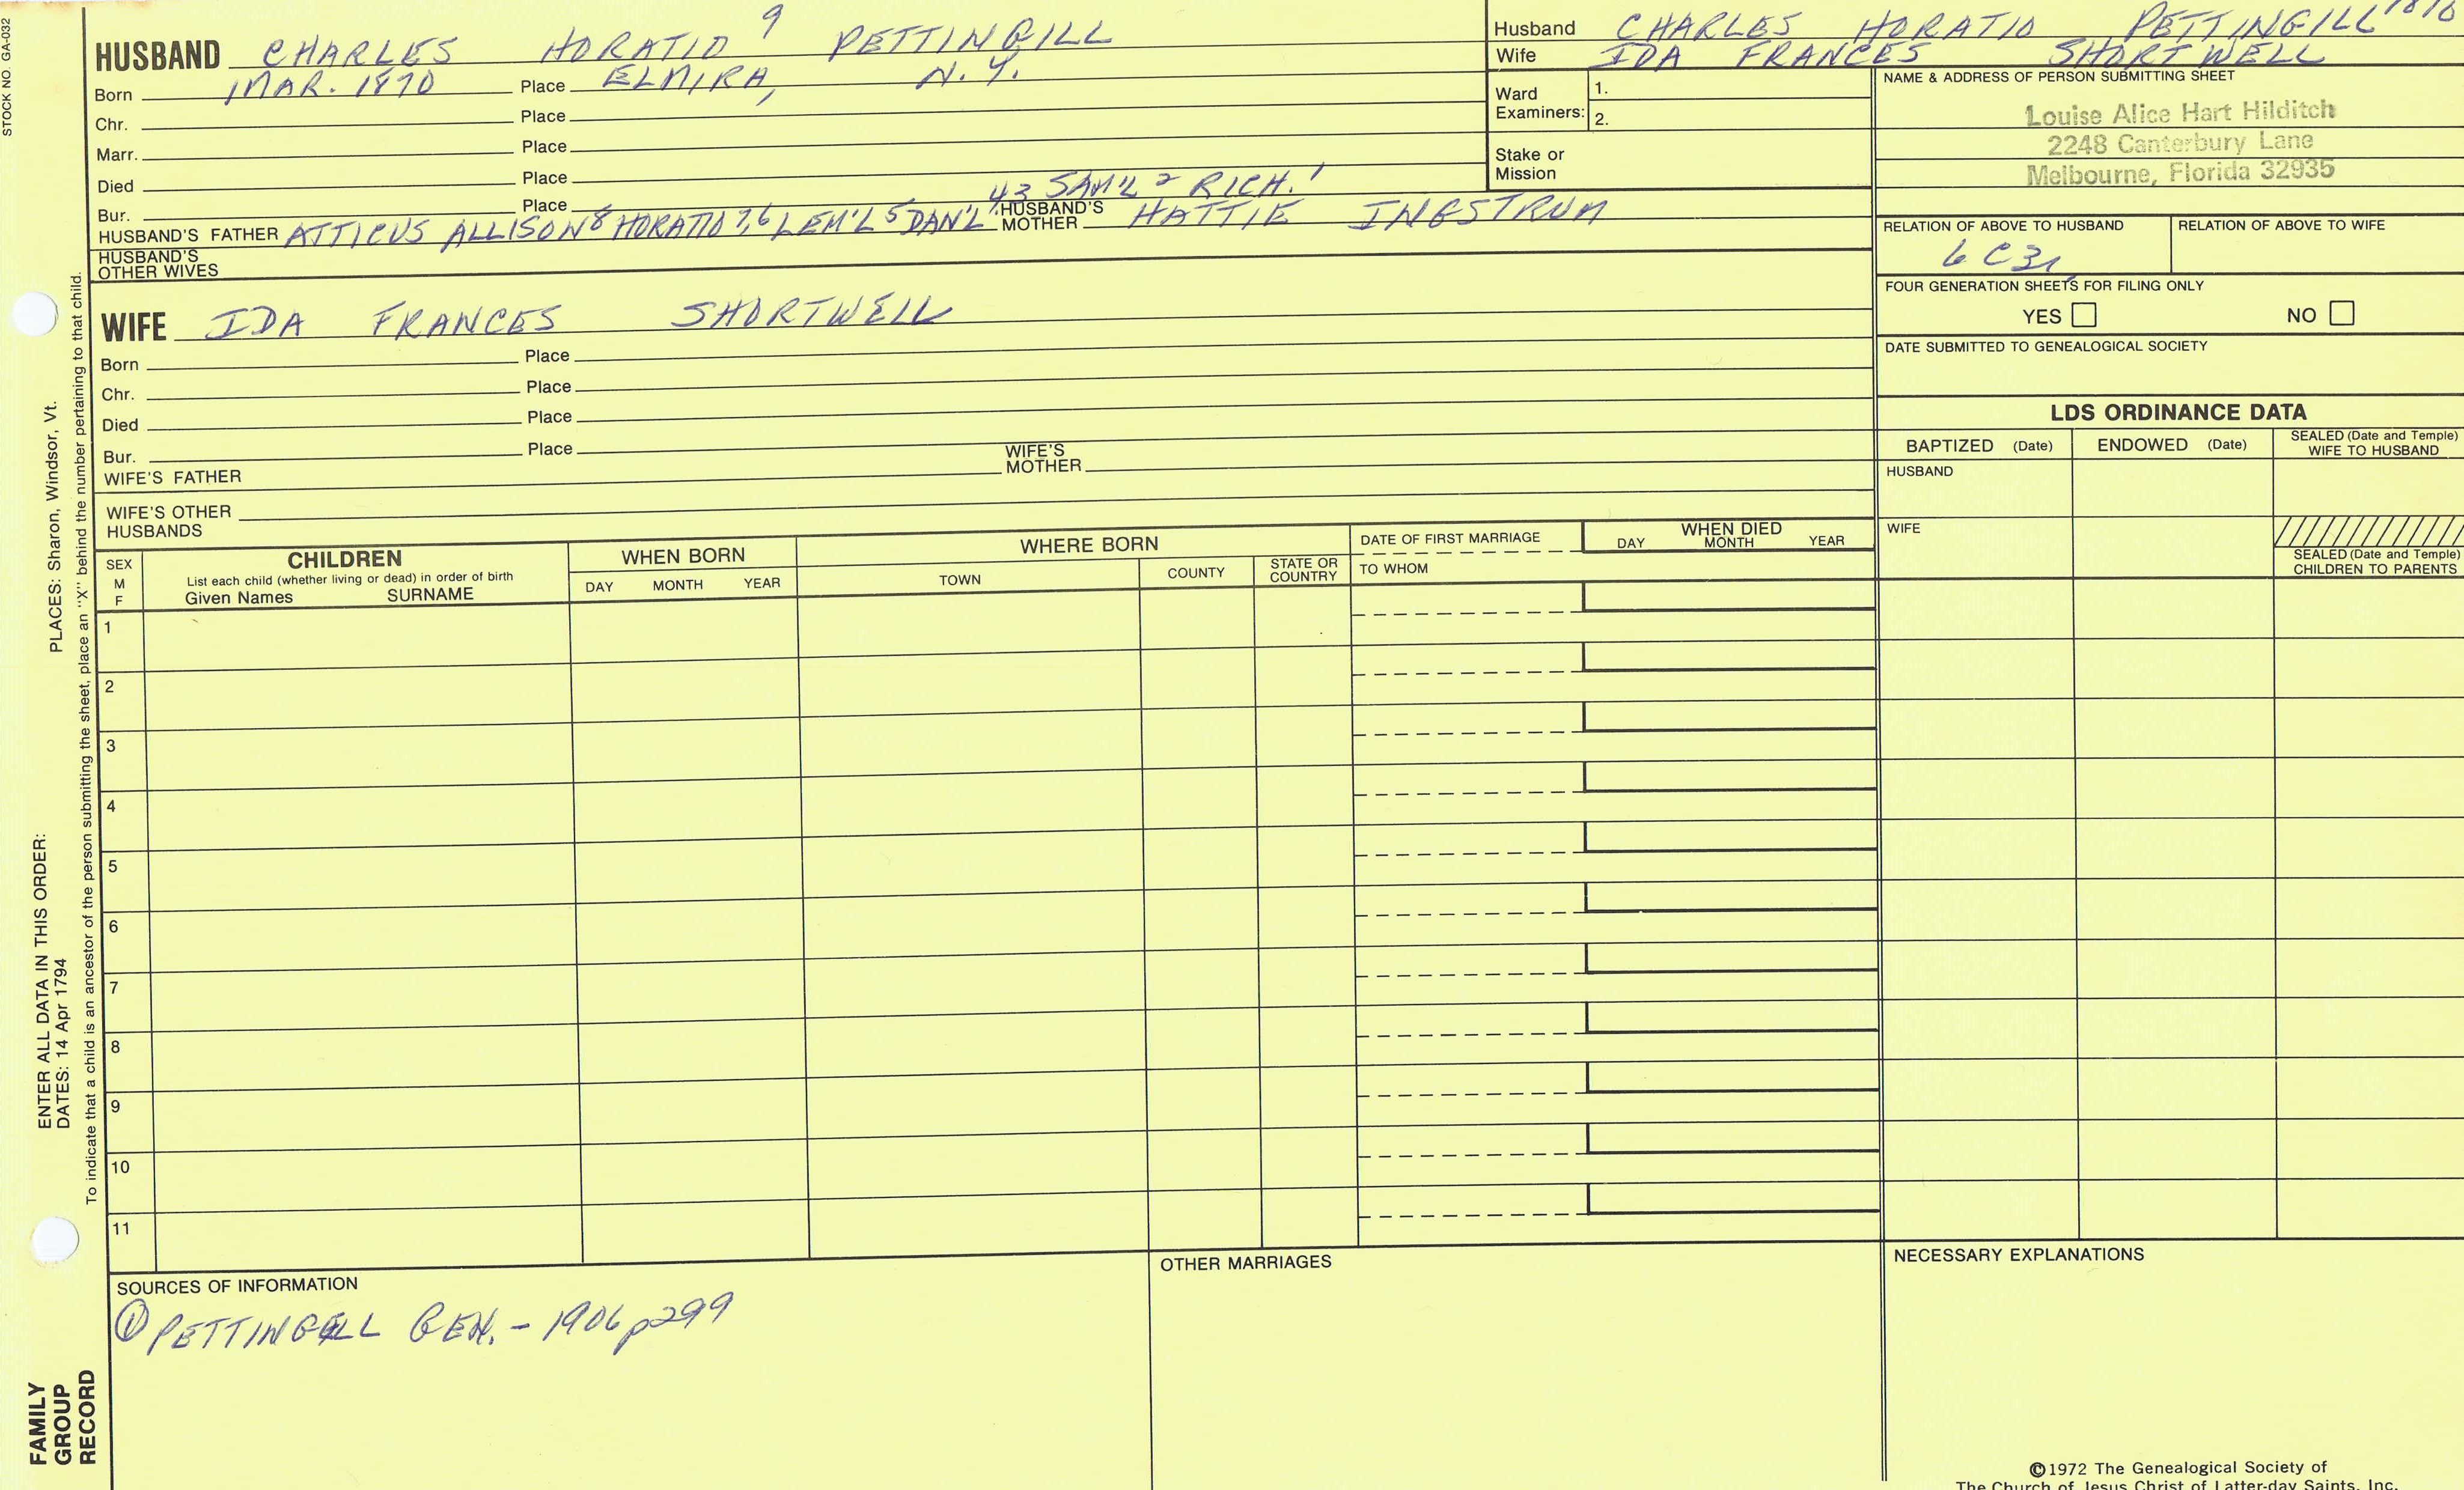 STOCK NO. GA-032
HUSBAND CHARLES HORATIO 9 PETTINGILL
Born 1 MAR. 1870 Place ELMIRA, N.Y.
Chr. Place
Marr. Place
Died Place
Bur. Place
43 SAM'L 2 RICH. 1
HUSBAND'S FATHER ATTICUS ALLISON 8 HORATIO 7,6 LEM'L 5 DAN'L HUSBAND'S MOTHER HATTIE INGSTRUM
HUSBAND'S OTHER WIVES
WIFE IDA FRANCES SHORTWELL
Born Place
Chr. Place
Died Place
Bur. Place
WIFE'S FATHER WIFE'S MOTHER
WIFE'S OTHER HUSBANDS
Husband CHARLES HORATIO PETTINGILL 1870
Wife IDA FRANCES SHORTWELL
Ward Examiners: 1.
2.
Stake or Mission
NAME & ADDRESS OF PERSON SUBMITTING SHEET
Louise Alice Hart Hilditch
2248 Canterbury Lane
Melbourne, Florida 32935
RELATION OF ABOVE TO HUSBAND RELATION OF ABOVE TO WIFE
6 C 3r
FOUR GENERATION SHEETS FOR FILING ONLY
YES NO
DATE SUBMITTED TO GENEALOGICAL SOCIETY
LDS ORDINANCE DATA
BAPTIZED (Date) ENDOWED (Date) SEALED (Date and Temple) WIFE TO HUSBAND
HUSBAND
WIFE
SEALED (Date and Temple) CHILDREN TO PARENTS
SEX M F
CHILDREN
List each child (whether living or dead) in order of birth
Given Names SURNAME
WHEN BORN
DAY MONTH YEAR
WHERE BORN
TOWN COUNTY STATE OR COUNTRY
DATE OF FIRST MARRIAGE
TO WHOM
WHEN DIED
DAY MONTH YEAR
1
2
3
4
5
6
7
8
9
10
11
SOURCES OF INFORMATION
① PETTINGELL GEN. - 1906 p299
OTHER MARRIAGES
NECESSARY EXPLANATIONS
©1972 The Genealogical Society of
The Church of Jesus Christ of Latter-day Saints, Inc.
FAMILY GROUP RECORD
ENTER ALL DATA IN THIS ORDER:
DATES: 14 Apr 1794
PLACES: Sharon, Windsor, Vt.
To indicate that a child is an ancestor of the person submitting the sheet, place an "X" behind the number pertaining to that child.